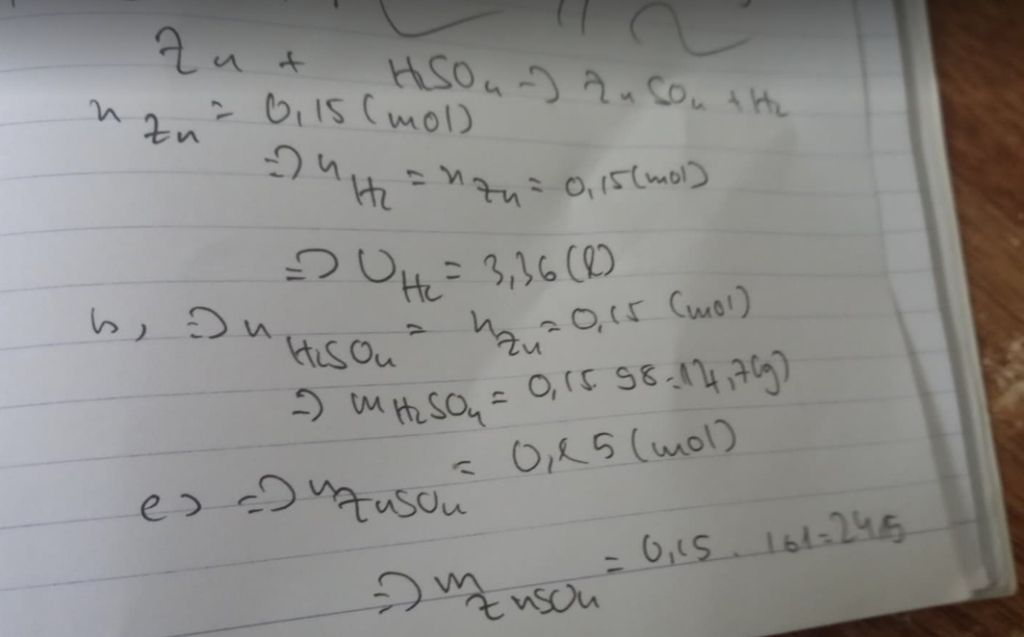 Zn + H2SO4 => ZnSO4 + H2
nZn = 0,15 (mol)
=> nH2 = nZn = 0,15 (mol)
=> VH2 = 3,36 (l)
b, => nH2SO4 = nZn = 0,15 (mol)
=> mH2SO4 = 0,15 . 98 = 14,7(g)
c) => nZnSO4 = 0,15 (mol)
=> mZnSO4 = 0,15 . 161 = 24,5